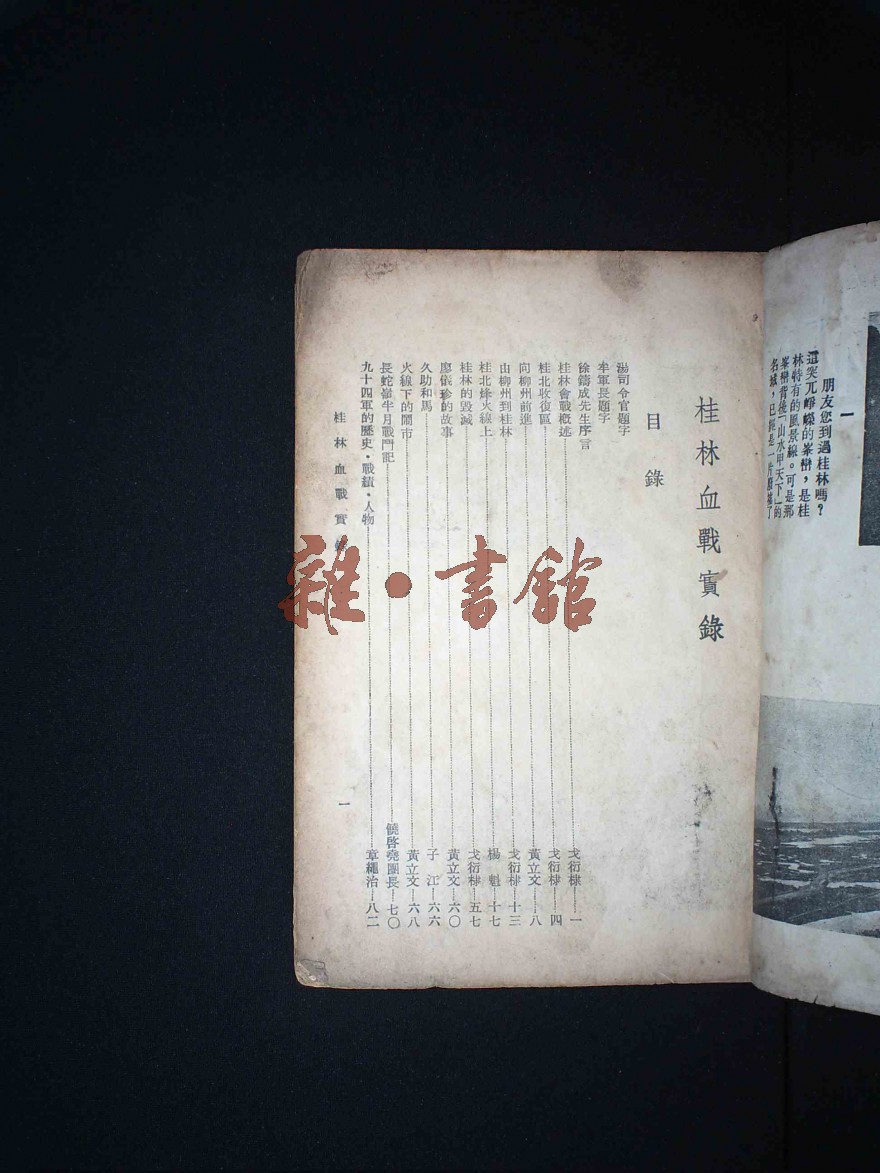 朋友您到過桂林嗎？
這突兀崢嶸的峯巒，是桂
林特有的風景線。可是那
峯巒背後「山水甲天下」的
名城，已經是一片廢墟了
一
桂林血戰實錄
目錄
湯司令官題字
牟軍長題字
徐鑄成先生序言
桂林會戰概述 戈衍棣 一
桂北收復區 戈衍棣 四
向柳州前進 黃立文 八
由柳州到桂林 戈衍棣 十三
桂北烽火線上 楊魁 十七
桂林的毀滅 戈衍棣 五七
廖儀珍的故事 黃立文 六〇
久助和馬 子江 六六
火線下的鬧市 黃立文 六八
長蛇嶺半月戰鬥記 饒啓堯團長 七〇
九十四軍的歷史・戰績・人物 章繩治 八二
桂林血戰實
一
雜・書館